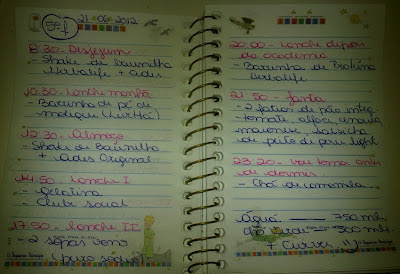 5ªf 21.06.2012
8:30 - Desjejum
- Shake de baunilha
Herbalife + Ades
10:30 - Lanche manhã
- Barrinha de pé de
moleque (Nutry)
12:30 - Almoço
- Shake de Baunilha
+ Ades Original
14:50 - Lanche I
- Gelatina
- Club social
17:50 - Lanche II
- 2
20:00 - Lanche depois
da academia
- Barrinha de Proteína
Herbalife
21:50 - Janta
- 2 fatias de pão integ.
- tomate, alface,
maionese, salsicha
de peito de peru light
23:20 - antes
de dormir
- Chá de camomila
Água 750 ml
Chá 500 ml
+
O Pequeno Príncipe